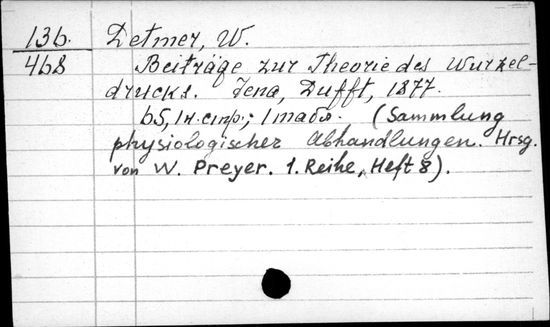 136.
468
Detmer, W.
Beiträge zur Theorie des Wurzel-
drucks. Jena, Dufft, 1877.
65, 1 н. стр.; 1 табл. (Sammlung
physiologischer Abhandlungen. Hrsg.
von W. Preyer. 1. Reihe, Heft 8).